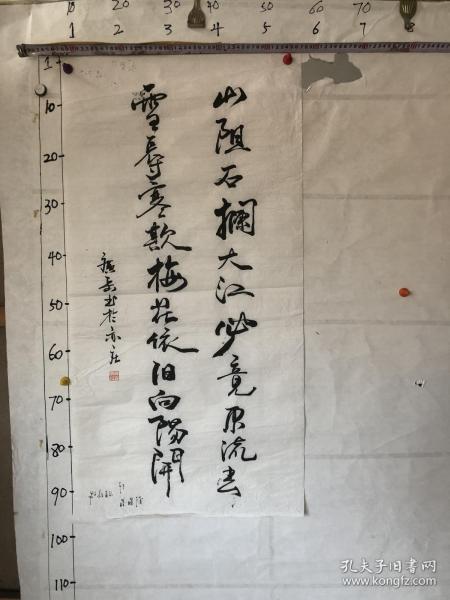 山阻石拦大江必竟东流去
雪辱寒欺梅花依旧向阳开
10 20 30 40 50 60 70
1 2 3 4 5 6 7 8
1
10
20
30
40
50
60
70
80
90
100
110
孔夫子旧书网
www.kongfz.com